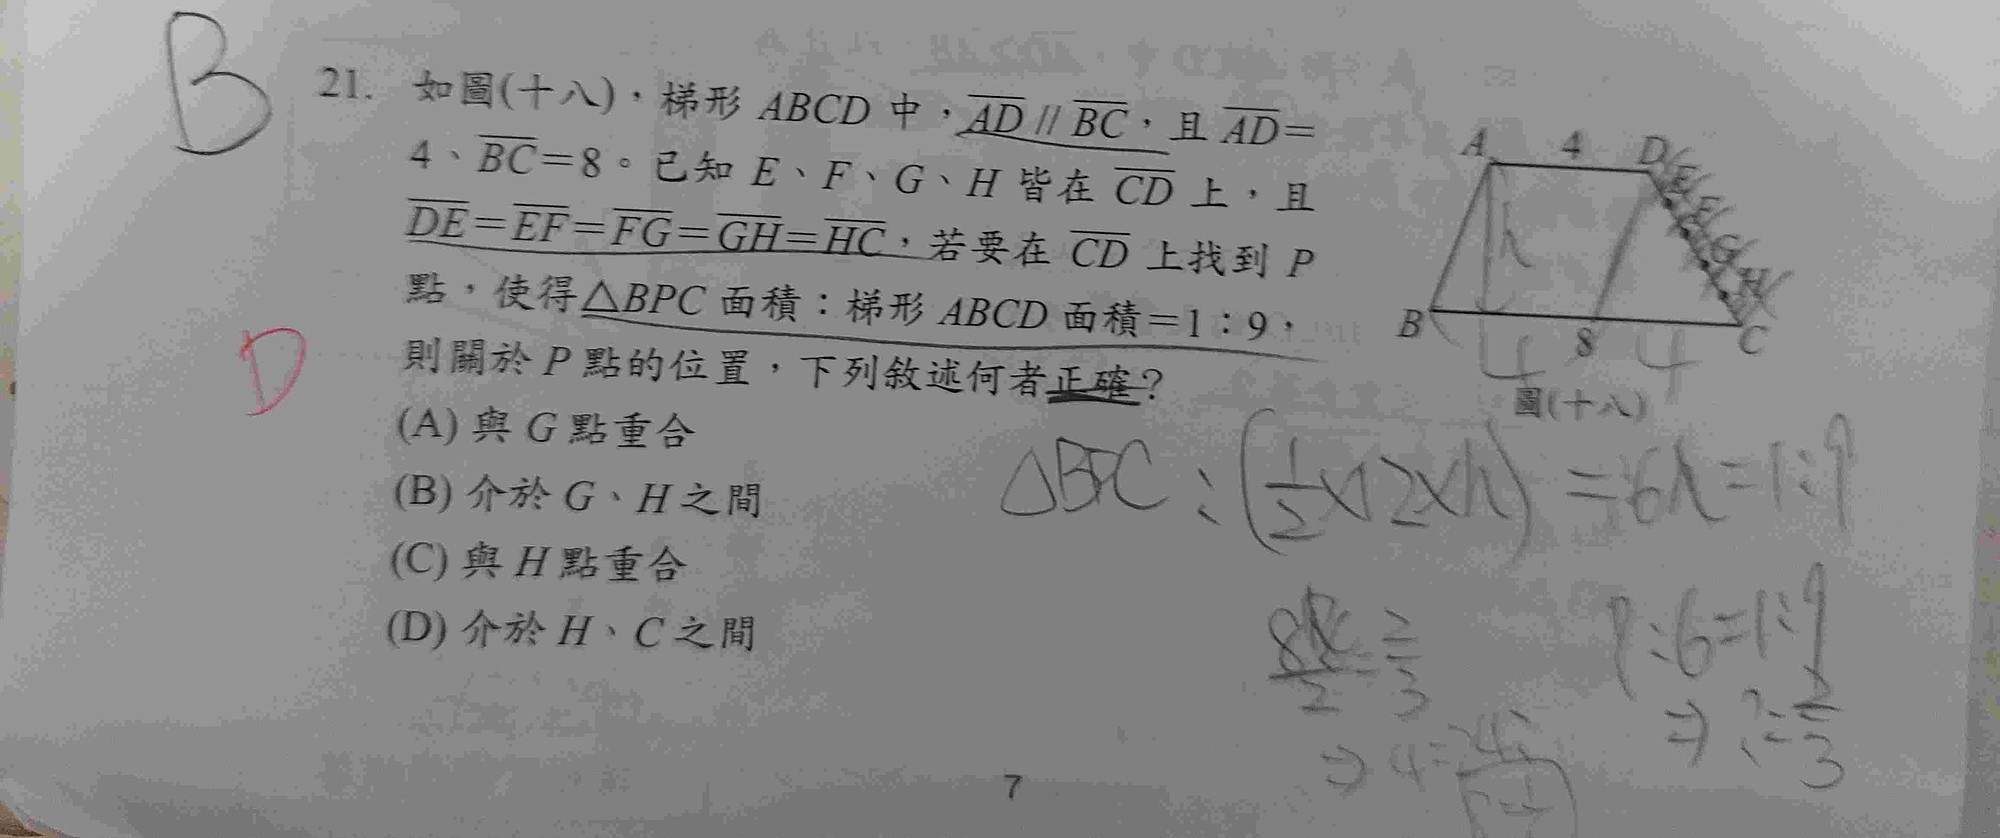 B
21. 如圖(十八)，梯形 ABCD 中，AD // BC，且 AD=
4、BC=8。已知 E、F、G、H 皆在 CD 上，且
DE=EF=FG=GH=HC，若要在 CD 上找到 P
點，使得△BPC 面積：梯形 ABCD 面積=1：9，
則關於 P 點的位置，下列敘述何者正確？
(A) 與 G 點重合
(B) 介於 G、H 之間
(C) 與 H 點重合
(D) 介於 H、C 之間
D
A 4 D
E
F
G
H
h
B 8 C
4 4
圖(十八)
△BPC : (1/2×12×h) = 6h = 1:9
?:6=1:9
⇒ ?=2/3
7